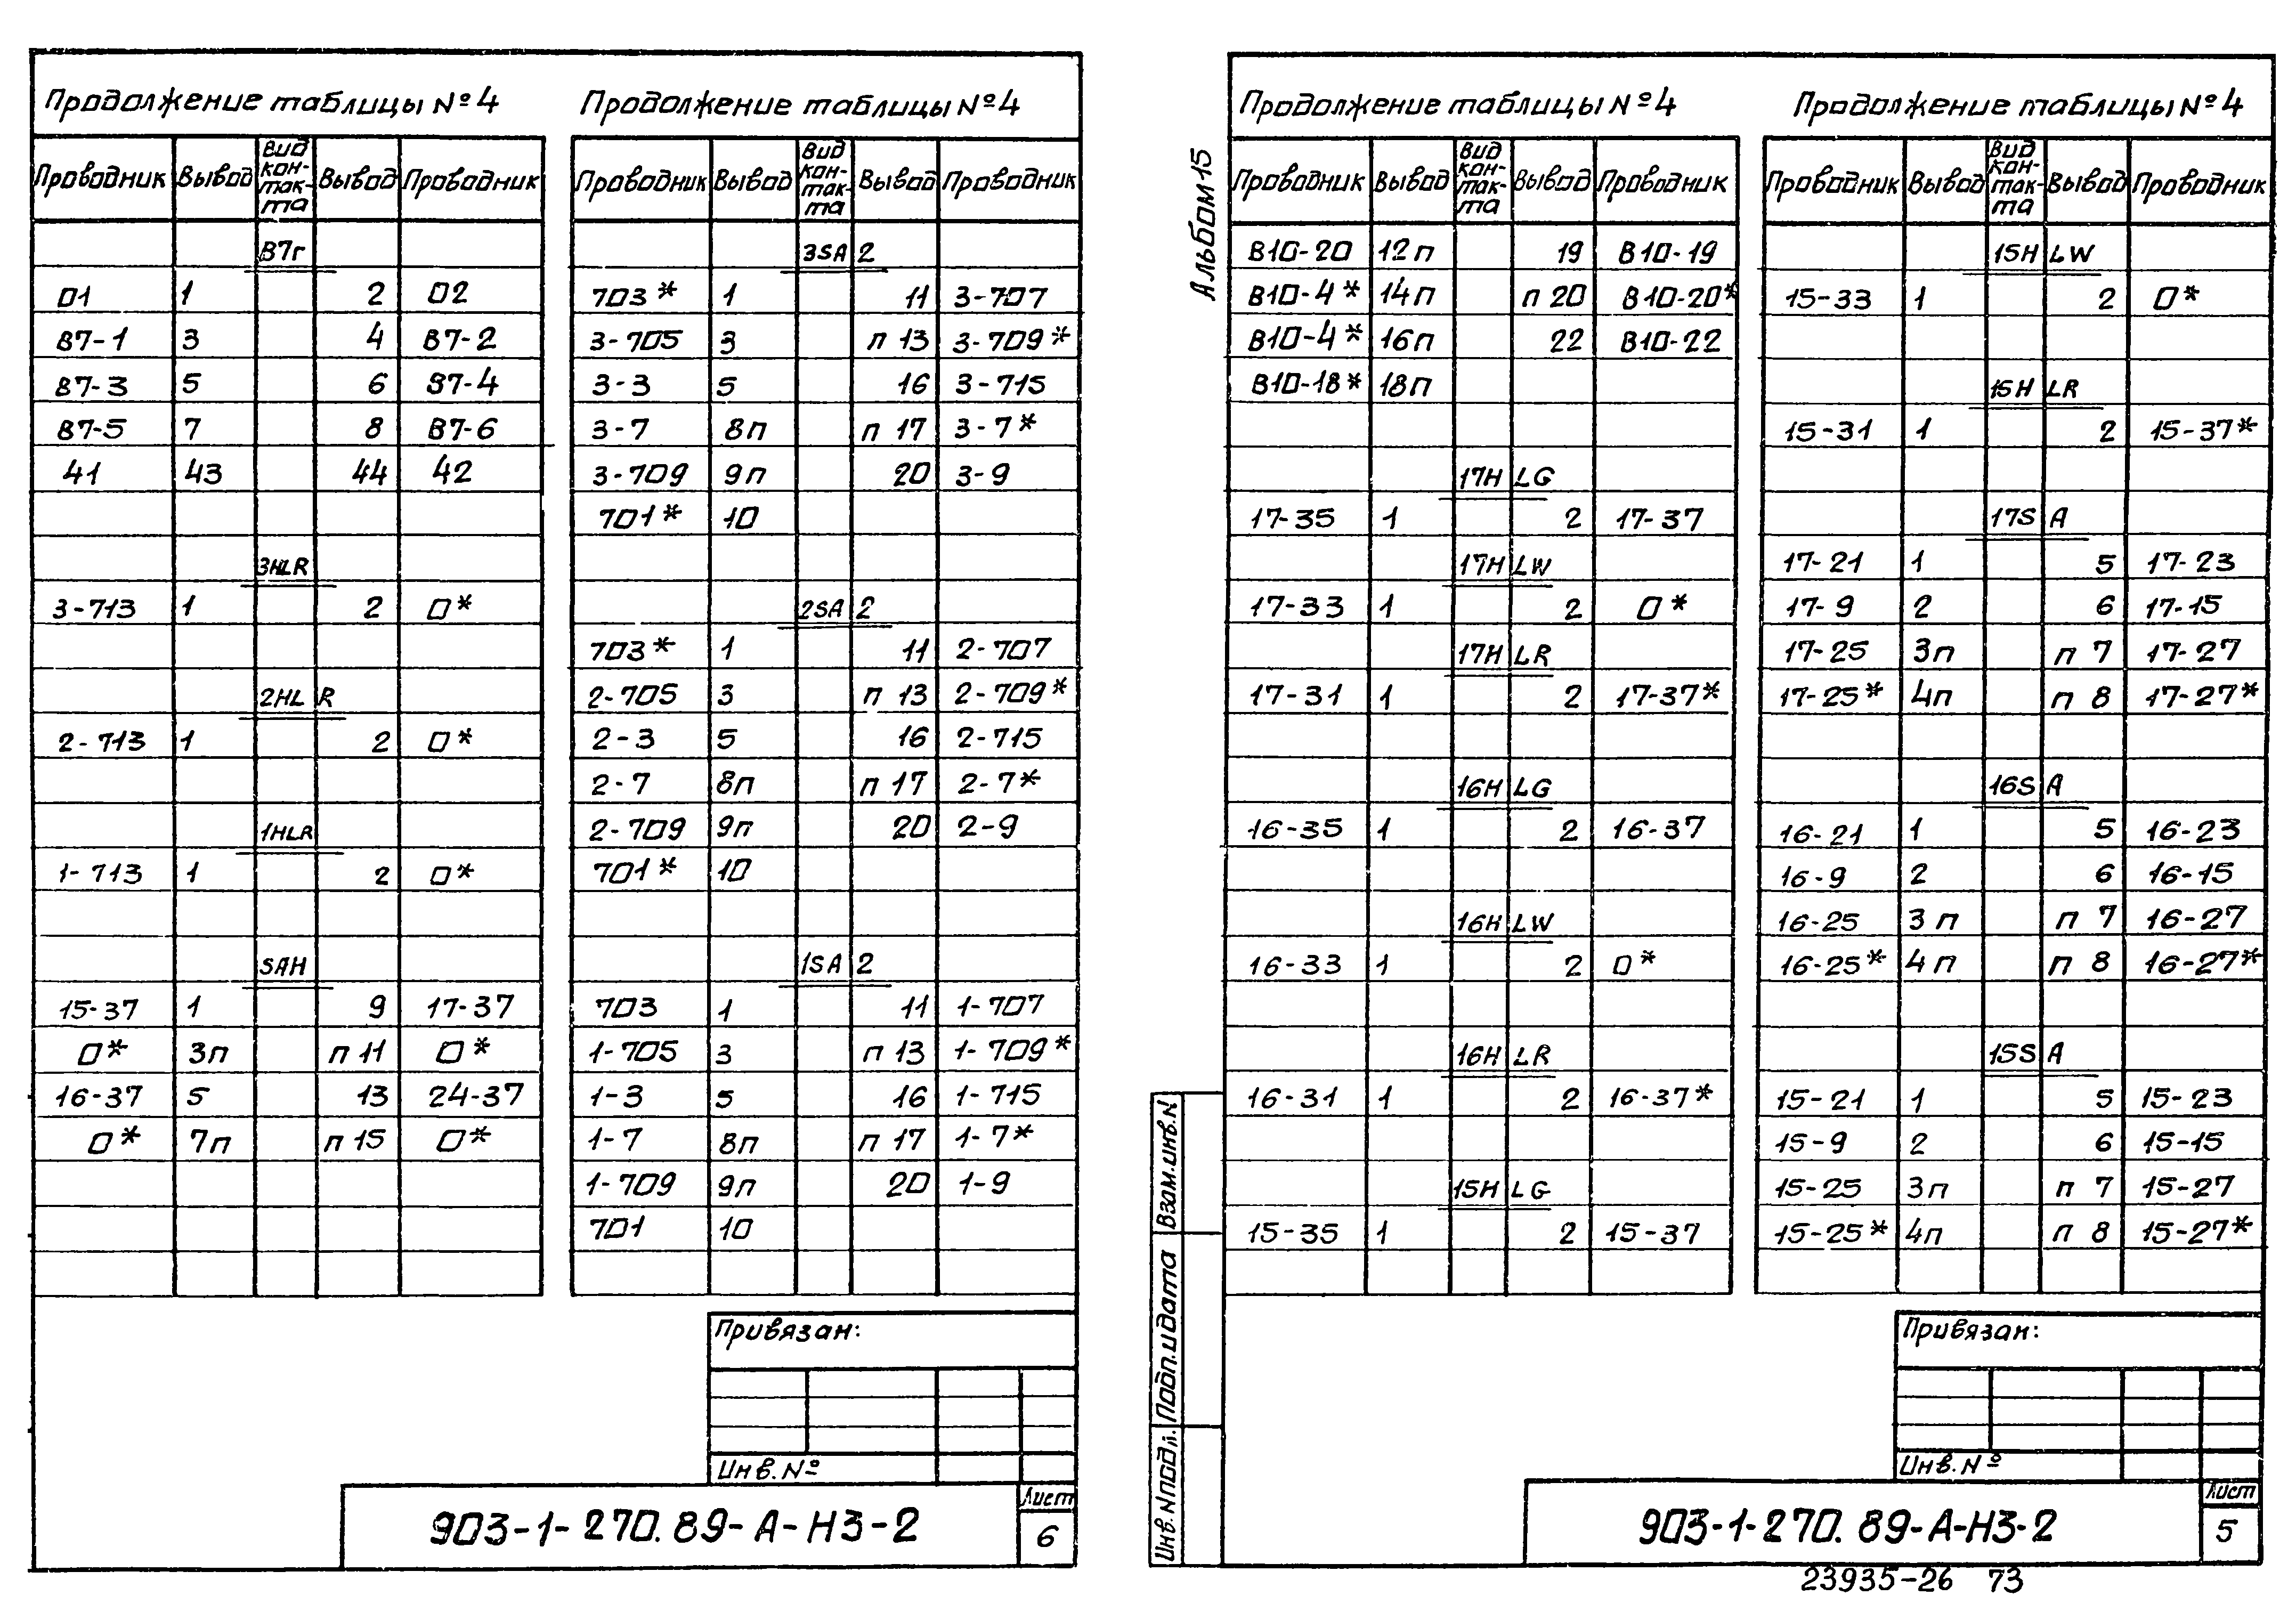 Продолжение таблицы №4
Проводник Вывод Вид кон-так-та Вывод Проводник
В7г
01 1 2 02
В7-1 3 4 В7-2
В7-3 5 6 В7-4
В7-5 7 8 В7-6
41 43 44 42
3HLR
3-713 1 2 0*
2HLR
2-713 1 2 0*
1HLR
1-713 1 2 0*
SAH
15-37 1 9 17-37
0* 3п п 11 0*
16-37 5 13 24-37
0* 7п п 15 0*
Продолжение таблицы №4
Проводник Вывод Вид кон-так-та Вывод Проводник
3SA2
703* 1 11 3-707
3-705 3 п 13 3-709*
3-3 5 16 3-715
3-7 8п п 17 3-7*
3-709 9п 20 3-9
701* 10
2SA2
703* 1 11 2-707
2-705 3 п 13 2-709*
2-3 5 16 2-715
2-7 8п п 17 2-7*
2-709 9п 20 2-9
701* 10
1SA2
703 1 11 1-707
1-705 3 п 13 1-709*
1-3 5 16 1-715
1-7 8п п 17 1-7*
1-709 9п 20 1-9
701 10
Привязан:
Инв. №
903-1-270.89-А-НЗ-2
Лист
6
Альбом 15
Продолжение таблицы №4
Проводник Вывод Вид кон-так-та Вывод Проводник
В10-20 12п 19 В10-19
В10-4* 14п п 20 В10-20*
В10-4* 16п 22 В10-22
В10-18* 18п
17HLG
17-35 1 2 17-37
17HLW
17-33 1 2 0*
17HLR
17-31 1 2 17-37*
16HLG
16-35 1 2 16-37
16HLW
16-33 1 2 0*
16HLR
16-31 1 2 16-37*
15HLG
15-35 1 2 15-37
Продолжение таблицы №4
Проводник Вывод Вид кон-так-та Вывод Проводник
15HLW
15-33 1 2 0*
15HLR
15-31 1 2 15-37*
17SA
17-21 1 5 17-23
17-9 2 6 17-15
17-25 3п п 7 17-27
17-25* 4п п 8 17-27*
16SA
16-21 1 5 16-23
16-9 2 6 16-15
16-25 3п п 7 16-27
16-25* 4п п 8 16-27*
15SA
15-21 1 5 15-23
15-9 2 6 15-15
15-25 3п п 7 15-27
15-25* 4п п 8 15-27*
Взам. инв. №
Подп. и дата
Инв. № подл.
Привязан:
Инв. №
903-1-270.89-А-НЗ-2
Лист
5
23935-26 73